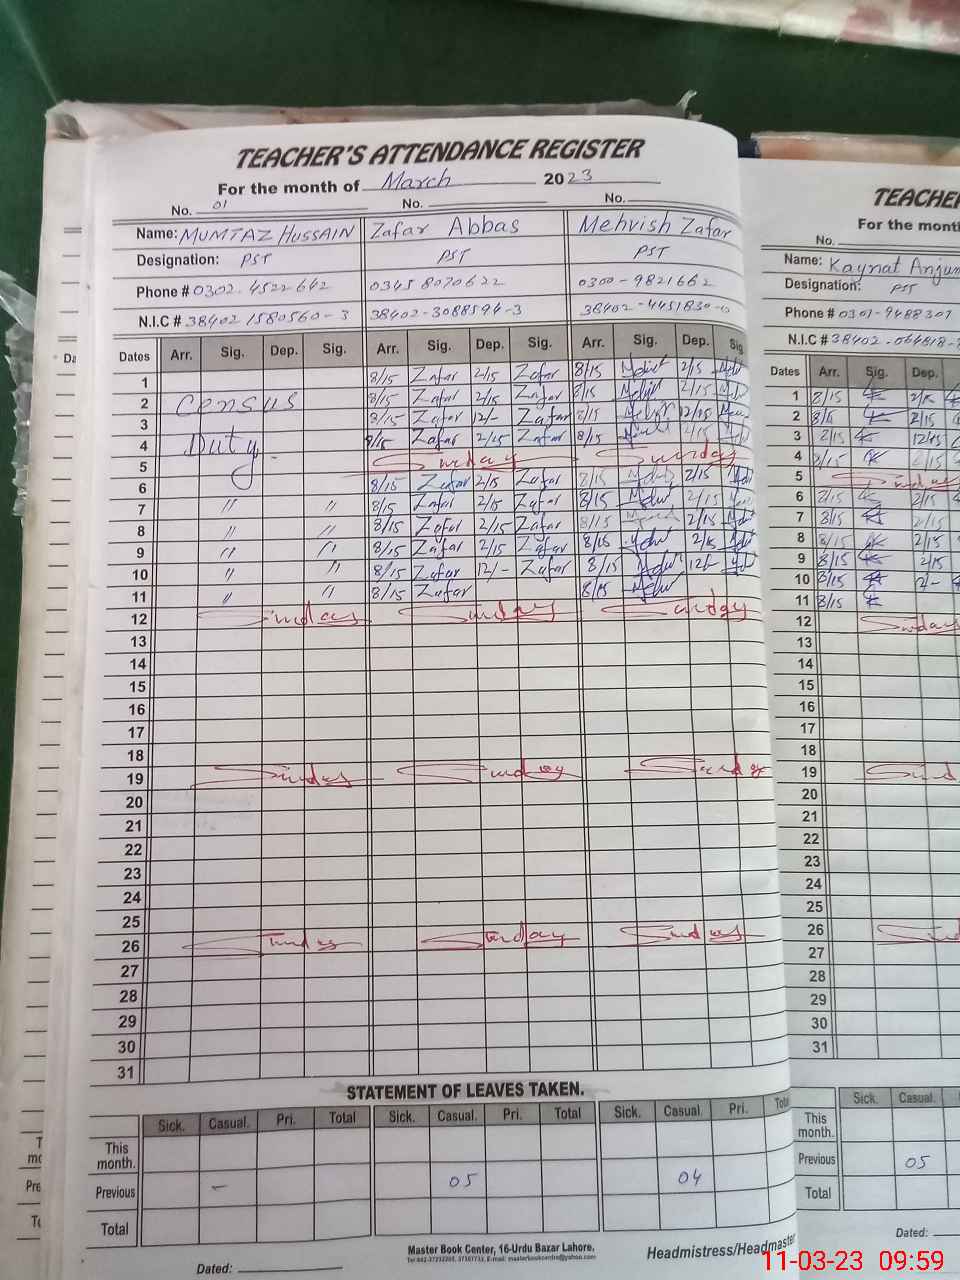 TEACHER'S ATTENDANCE REGISTER
For the month of March 2023
No. 01 No. No.
Name: MUMTAZ HUSSAIN Zafar Abbas Mehvish Zafar
Designation: PST PST PST
Phone # 0302.4522642 03458070622 0300-9821662
N.I.C # 38402 1580560-3 38402-3088594-3 38402-4451830-0
Dates Arr. Sig. Dep. Sig. Arr. Sig. Dep. Sig. Arr. Sig. Dep. Sig
1 8/15 Zafar 2/15 Zafar 8/15 2/15
2 Census 8/15 Zafar 2/15 Zafar 8/15 2/15
3 8/15 Zafar 12/- Zafar 8/15 12/15
4 Duty 8/15 Zafar 2/15 Zafar 8/15 2/15
5 Sunday Sunday
6 8/15 Zafar 2/15 Zafar 8/15 2/15
7 " " 8/15 Zafar 2/15 Zafar 8/15 2/15
8 " " 8/15 Zafar 2/15 Zafar 8/15 2/15
9 " " 8/15 Zafar 2/15 Zafar 8/15 2/15
10 " " 8/15 Zafar 12/- Zafar 8/15 12/-
11 " " 8/15 Zafar 8/15
12 Sunday Sunday Sunday
13
14
15
16
17
18
19 Sunday Sunday Sunday
20
21
22
23
24
25
26 Sunday Sunday Sunday
27
28
29
30
31
STATEMENT OF LEAVES TAKEN.
Sick. Casual. Pri. Total Sick. Casual. Pri. Total Sick. Casual. Pri. Total
This month.
Previous - 05 04
Total
Master Book Center, 16-Urdu Bazar Lahore.
Dated: Headmistress/Headmaster
TEACHER
For the month
No.
Name: Kaynat Anjum
Designation: PST
Phone # 0301-9488307
N.I.C # 38402-064518-
Dates Arr. Sig. Dep.
1 8/15 2/15
2 8/15 2/15
3 8/15 12/15
4 8/15 2/15
5 Sunday
6 8/15 2/15
7 8/15 2/15
8 8/15 2/15
9 8/15 2/15
10 8/15 12/-
11 8/15
12 Sunday
13
14
15
16
17
18
19 Sund
20
21
22
23
24
25
26
27
28
29
30
31
Sick. Casual.
This month.
Previous 05
Total
Dated:
11-03-23 09:59